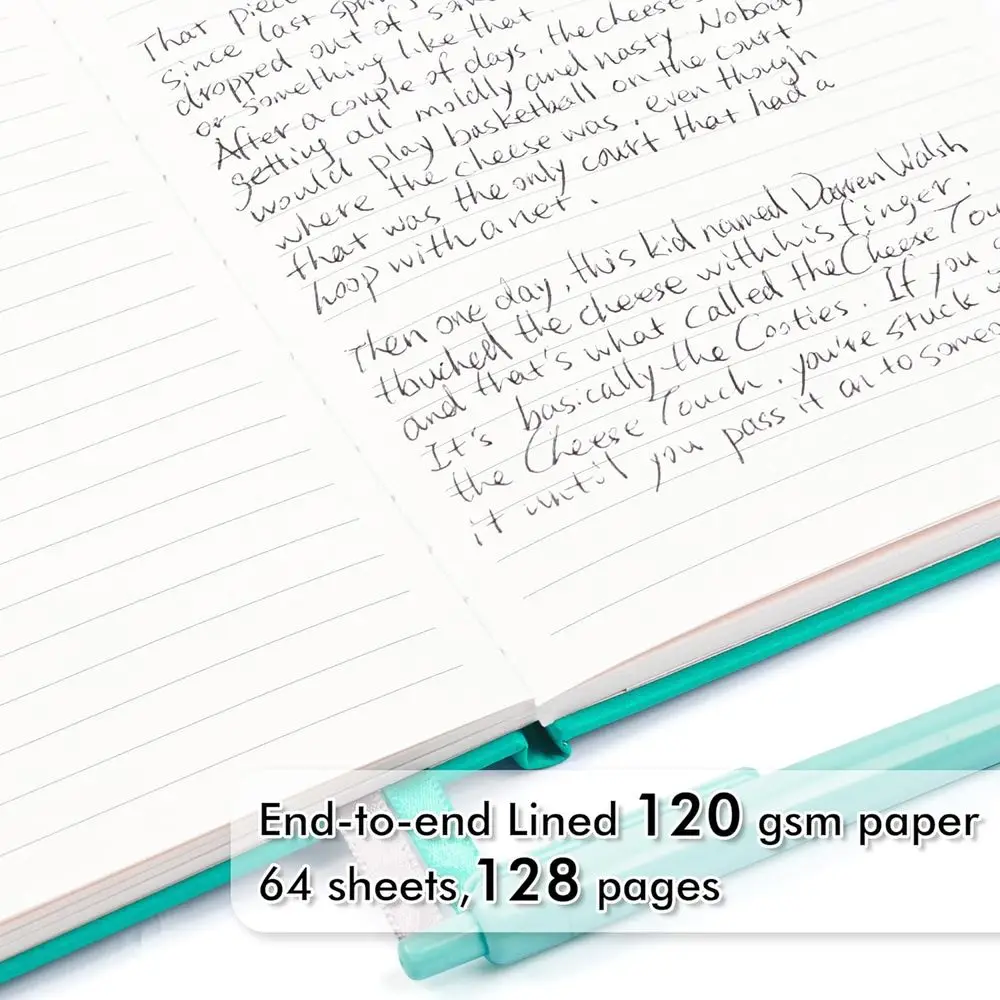 That piec
since last spr
dropped out of
or something like that
After a couple of days, the cheese
getting all moldly and nasty Nobody
would play basketball on the court
where the cheese was, even though
that was the only court that had a
hoop with a net.
Then one day, this kid named Darren Walsh
touched the cheese with his finger.
and that's what called the Cheese Tou
It's basically the Cooties. If you
the Cheese Touch, you're stuck
it until you pass it on to someo
End-to-end Lined 120 gsm paper
64 sheets,128 pages